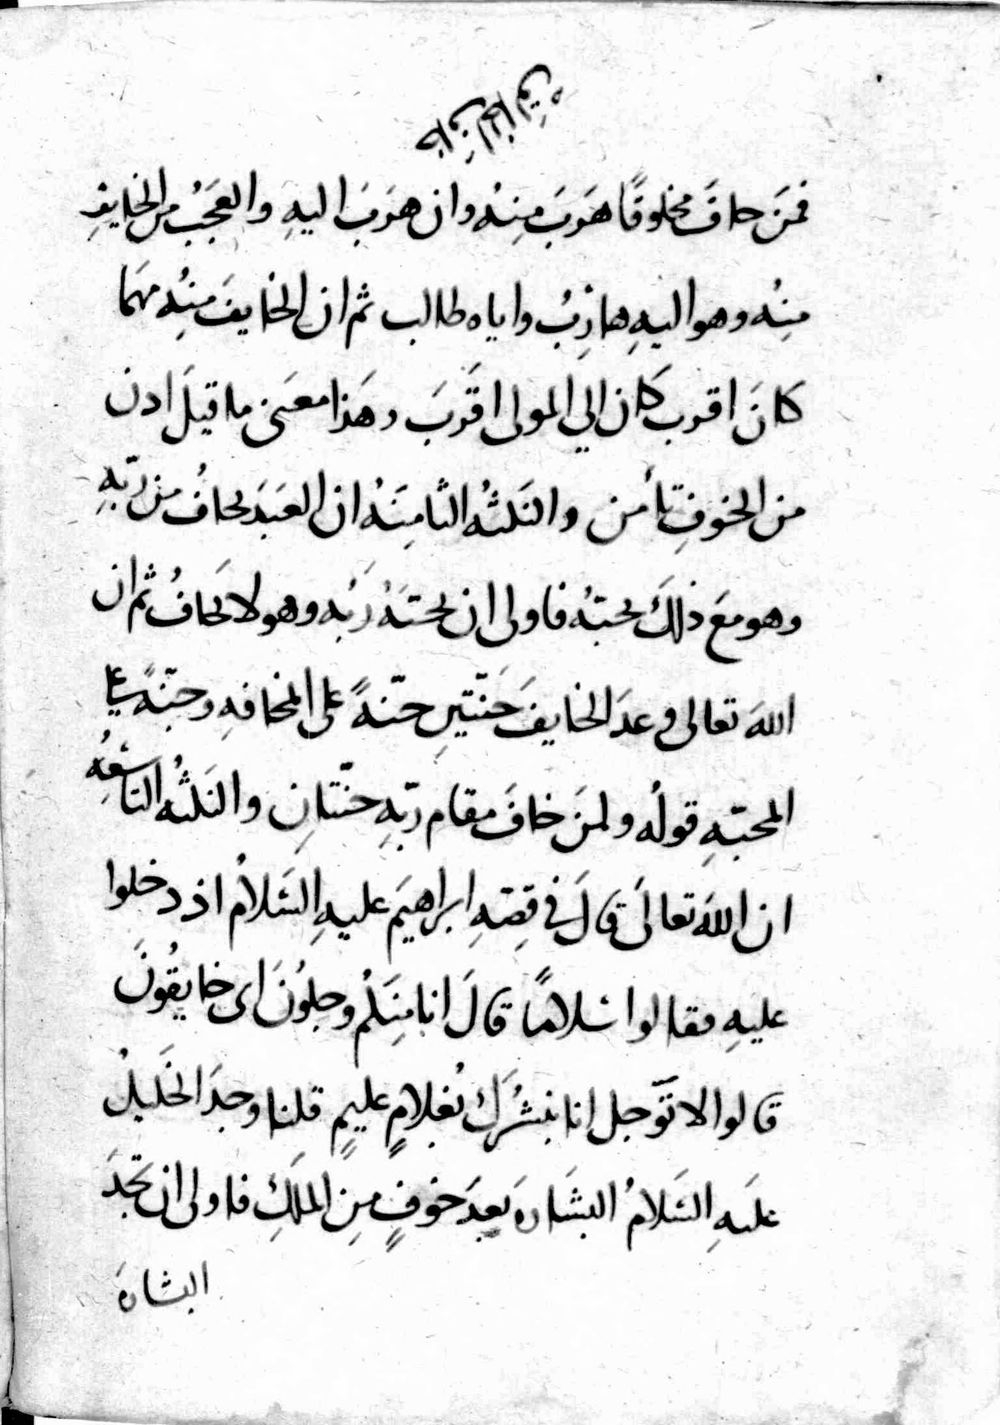 فمَن خافَ مخلوقًا هَرَبَ مِنهُ وان هَرَبَ اليهِ والعَجَبُ من الخايفِ
مِنهُ وهو اليهِ هارِبُ واياه طالب ثم ان الخايفَ مِنهُ مهَما
كانَ اقرب كان الي المولى اقرَبَ وهَذا معنى ما قيلَ ادن
من الخوفِ تأمن والنكتهُ الثامنَهُ ان العَبدَ يخافُ من ربّهِ
وهو معَ ذلكَ يحبّهُ فاولى ان يحبّهُ ربُه وهو لا يخافُ ثم ان
اللهَ تعالى وعدَ الخايفَ جَنّتينِ جنّهً على المخافهِ وجنّهً على
المحبّهِ قولُه ولمَن خافَ مقام ربّهِ جنّتانِ والنكتُه التاسِعَهُ
ان اللهَ تعالَى قالَ في قِصّهِ ابراهيَم عليهِ السَلامُ اذ دخلوا
عليهِ فقالوا سَلامًا قالَ انا مِنكُم وجِلوُنَ اى خايفُونَ
قالوا لا تَوجل انا نبشُرَك بُغلامٍ عليمٍ قلنا وجدَ الخَليلُ
عليَهِ السَلامُ البشَارهَ بعدَ خوفٍ مِنِ الملَكِ فاولى ان تجدَ
البشارهَ